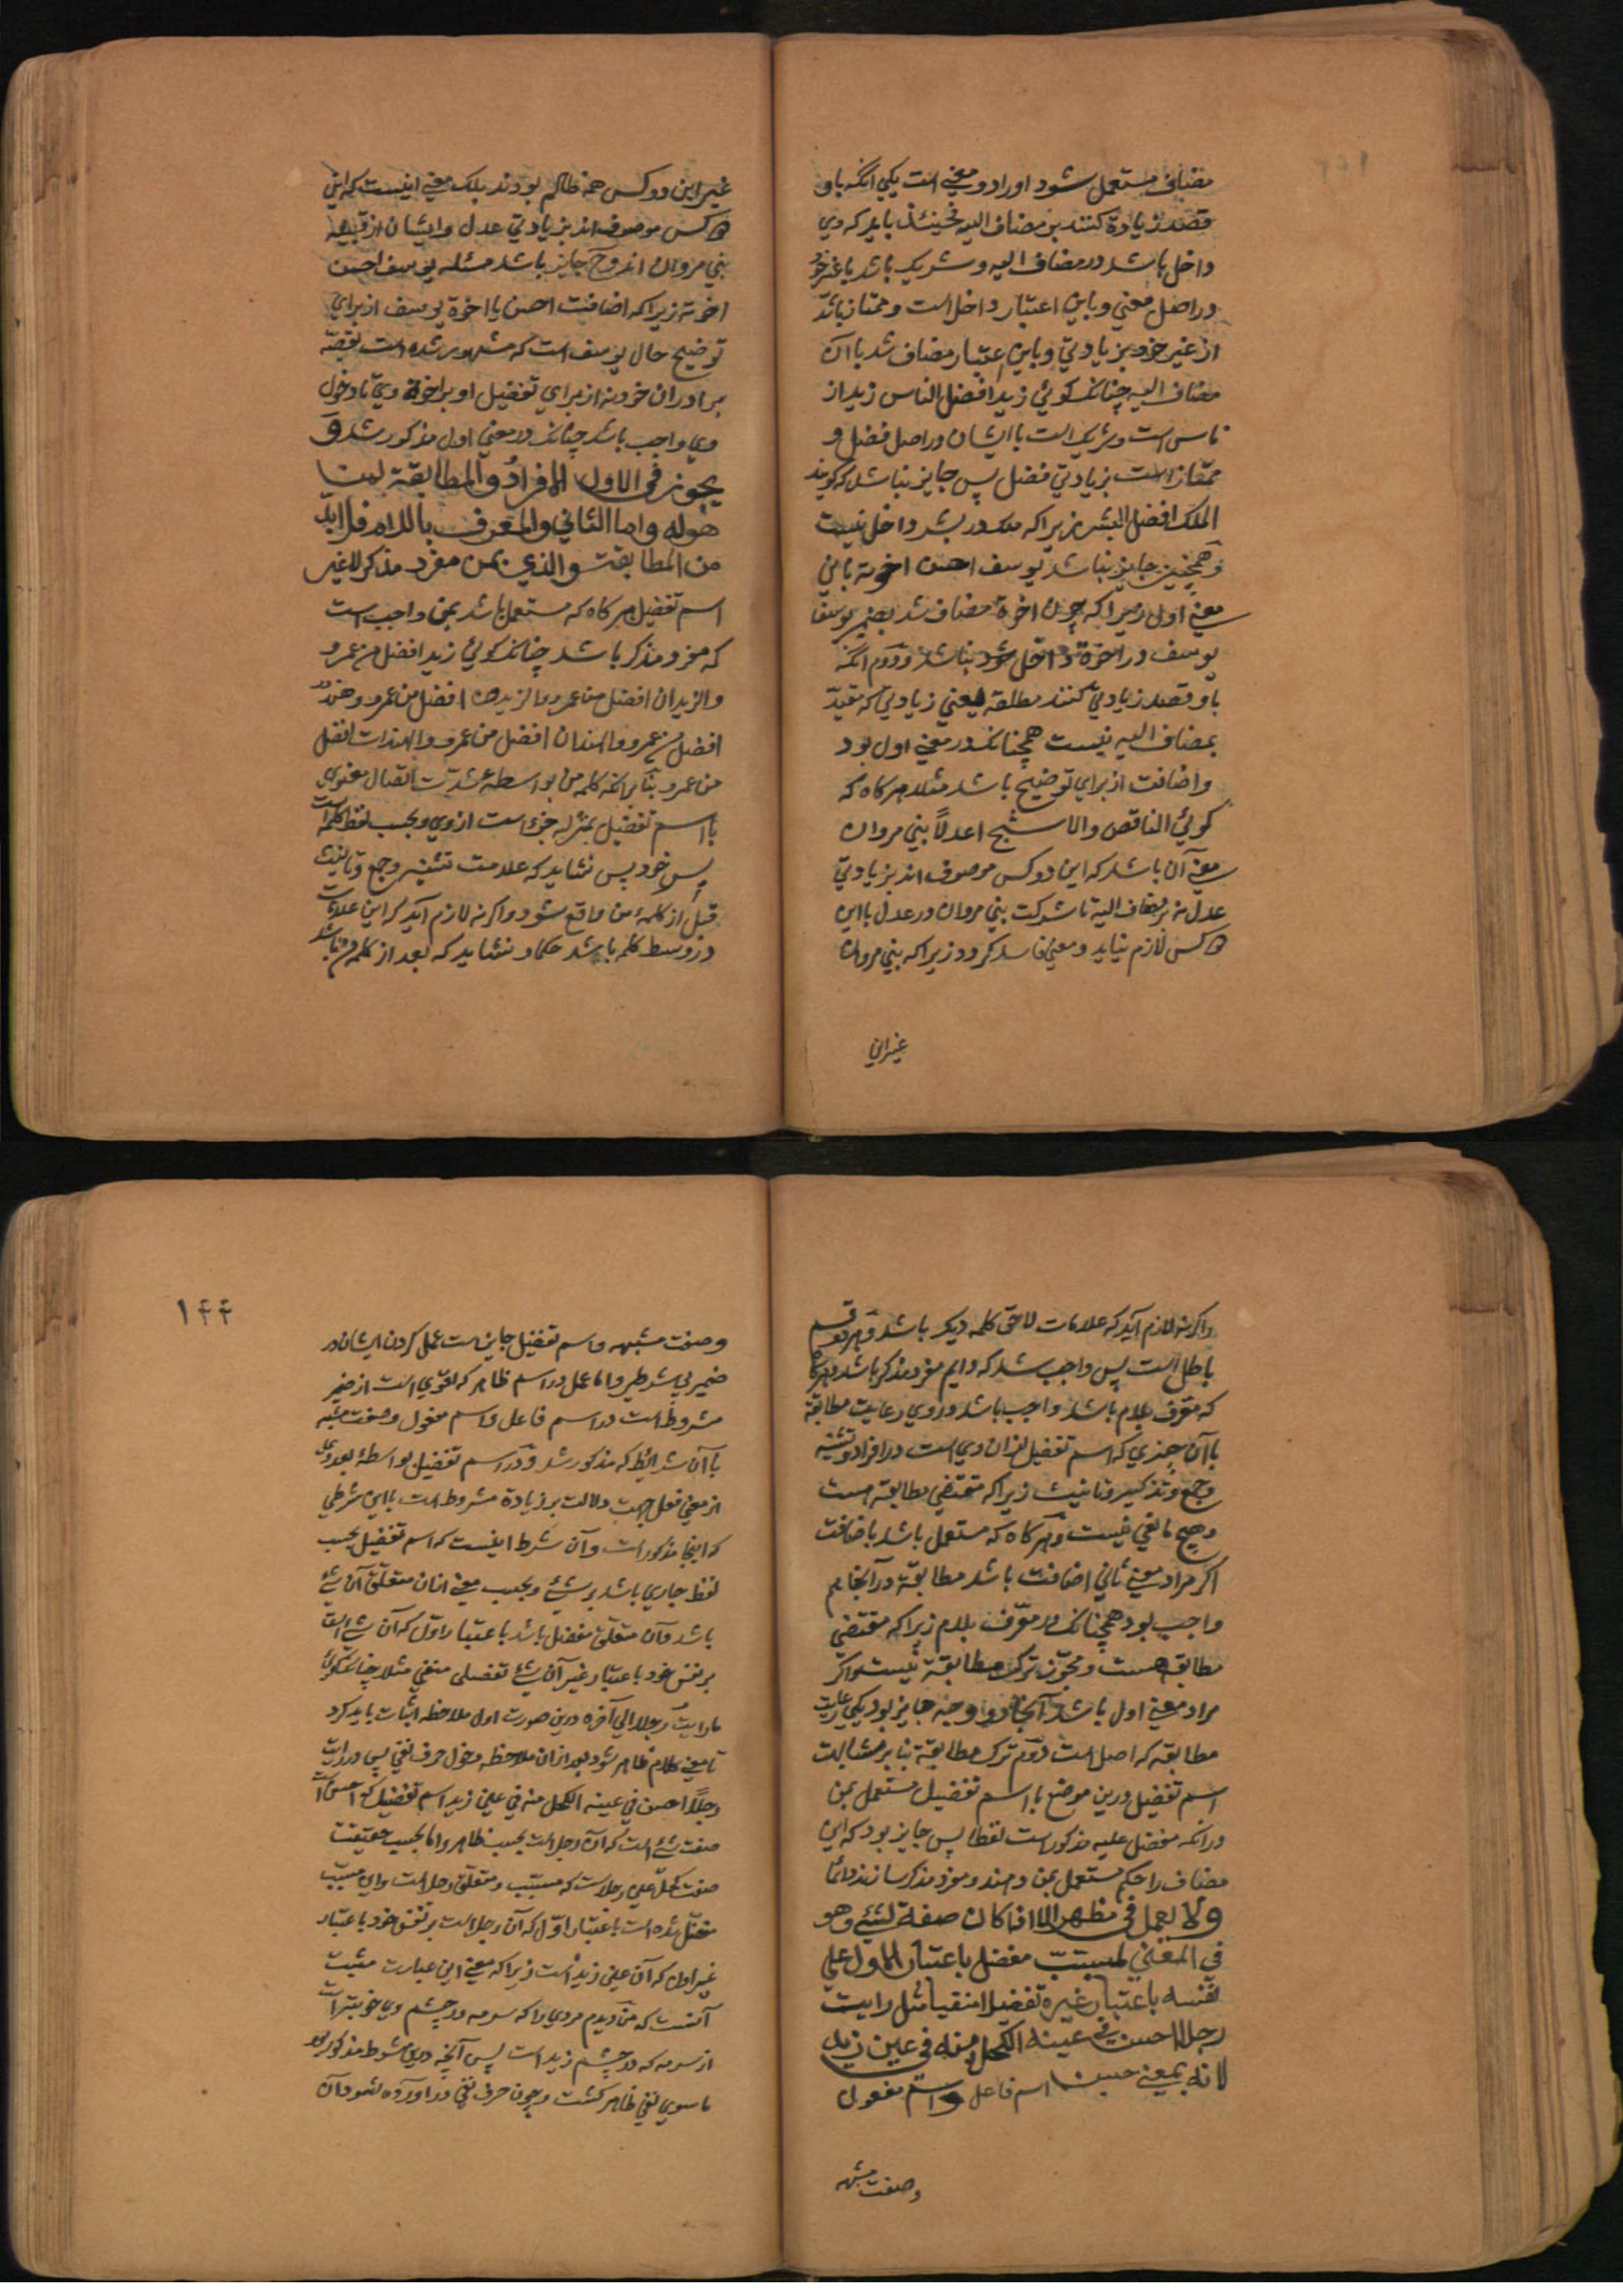 مضاف مستعمل شود او را دو معنی است یکی آنکه باو
قصد زیادة کنند بر مضاف الیه فحینئذ باید که وی
داخل باشد در مضاف الیه و شریک باشد با غیر خود
در اصل معنی و باین اعتبار داخل است و ممتاز باشد
از غیر خود بزیادتی و باین اعتبار مضاف شد با آن
مضاف الیه چنانکه کوئی زید افضل الناس زید از
ناس است و شریک است با ایشان در اصل فضل و
ممتاز است بزیادتی فضل پس جایز نباشد که کویند
الملک افضل البشر زیرا که ملک در بشر داخل نیست
و همچنین جایز نباشد یوسف احسن اخوته باین
معنی اول زیرا که چون اخوة مضاف شد بضمیر یوسف
یوسف در اخوة داخل نباشد و دوم آنکه
باو قصد زیادتی کنند مطلقه یعنی زیادتی که مقید
بمضاف الیه نیست همچنانکه در معنی اول بود
و اضافت از برای توضیح باشد مثلا هرکاه که
کوئی الناقص والاشبح اعدلا بنی مروان
معنی آن باشد که این دو کس موصوف اند بزیادتی
عدل نه بر مضاف الیه تا شرکت بنی مروان در عدل با این
دو کس لازم نیاید و معنی فاسد کردد زیرا که بنی مروان
غیر این
غیر این دو کس همه ظالم بودند بلک معنی اینست که این
دو کس موصوف اند بزیادتی عدل و ایشان از قبیله
بنی مروان اند و ح جایز باشد مسئله یوسف احسن
اخوته زیرا که اضافت احسن با اخوة یوسف از برای
توضیح حال یوسف است که مشهور شده است بقصه
برادران خود نه از برای تفضیل او بر اخوة وی تا دخول
وی واجب باشد چنانکه در معنی اول مذکور شد و
یجوز فی الاول الافراد والمطابقة لمن
هوله واما الثانی والمعرف باللام فلا بد
من المطابقة والذی بمن مفرد مذکر لا غیر
اسم تفضیل هرکاه که مستعمل باشد بمن واجب است
که مفرد مذکر باشد چنانکه کوئی زید افضل من عمرو
والزیدان افضل من عمرو والزیدون افضل من عمرو و هند
افضل من عمرو والهندان افضل من عمرو والهندات افضل
من عمرو بنا بر آنکه کلمه من بواسطه شدت اتصال معنوی
با اسم تفضیل بمنزله جزء است از وی و بحسب لفظ کلمه است
بسر خود پس نشاید که علامت تثنیه و جمع و تانیث
قبل از کلمه من واقع شود و اکر نه لازم آید که این علامات
در وسط کلمه باشد حکما و نشاید که بعد از کلمه من باشد
و اکر نه لازم آید که علامات لاحق کلمه دیکر باشد و هر دو قسم
باطل است پس واجب شد که دایم مفرد مذکر باشد و هرکاه
که معرف بلام باشد واجب باشد در وی رعایت مطابقة
با آن چیزی که اسم تفضیل از آن وی است در افراد و تثنیه
و جمع و تذکیر و تانیث زیرا که مقتضی مطابقة هست
و هیچ مانعی نیست و هرکاه که مستعمل باشد باضافت
اکر مراد معنی ثانی اضافت باشد مطابقة در آنجا هم
واجب بود همچنانکه در معرف بلام زیرا که مقتضی
مطابقه هست و مجوز ترک مطابقة نیست و اکر
مراد معنی اول باشد آنجا دو وجه جایز بود یکی رعایت
مطابقه که اصل است دوم ترک مطابقة بنا بر مشابهت
اسم تفضیل درین موضع با اسم تفضیل مستعمل بمن
در آنکه مفضل علیه مذکور است لفظا پس جایز بود که این
مضاف را حکم مستعمل بمن دهند و مفرد مذکر سازند دائما
ولا یعمل فی مظهر الا اذا کان صفة لشئ وهو
فی المعنی لمسبب مفضل باعتبار الاول علی
نفسه باعتبار غیره تفضیلا منفیا مثل ما رایت
رجلا احسن فی عینه الکحل منه فی عین زید
لانه بمعنی حسن اسم فاعل و اسم مفعول
وصفت مشبهه
۱۴۴
وصفت مشبهه و اسم تفضیل جایز است عمل کردن ایشان در
ضمیر بی شرطی و اما عمل در اسم ظاهر که اقوی است از ضمیر
مشروط است در اسم فاعل و اسم مفعول وصفت مشبه
با آن شرایط که مذکور شد و در اسم تفضیل بواسطه بعد وی
از معنی فعل جهت دلالت بر زیادة مشروط است با این شرطی
که اینجا مذکور است و آن شرط اینست که اسم تفضیل بحسب
لفظ جاری باشد بر شئ و بحسب معنی از آن متعلق آن شئ
باشد و آن متعلق مفضل باشد باعتبار اول که آن شئ است
بر نفس خود باعتبار غیر آن شئ تفضیلی منفی مثلا چنانکه کوئی
ما رایت رجلا الی آخره درین صورت اول ملاحظه اثبات باید کرد
تا معنی کلام ظاهر شود بعد از آن ملاحظه دخول حرف نفی پس در رایت
رجلا احسن فی عینه الکحل منه فی عین زید اسم تفضیل که احسن است
صفت شئ است که آن رجل است بحسب ظاهر و اما بحسب حقیقت
صفت کحل عین رجل است که مسبب و متعلق رجل است و این مسبب
مفضل شده است باعتبار اول که آن رجل است بر نفس خود باعتبار
غیر اول که آن عین زید است زیرا که معنی این عبارت مثبت
آنست که من دیدم مردی را که سرمه در چشم وی خوبتر است
از سرمه که در چشم زید است پس آنچه درین شرط مذکور بود
ما سوی نفی ظاهر کشت و چون حرف نفی در آورده شود آن